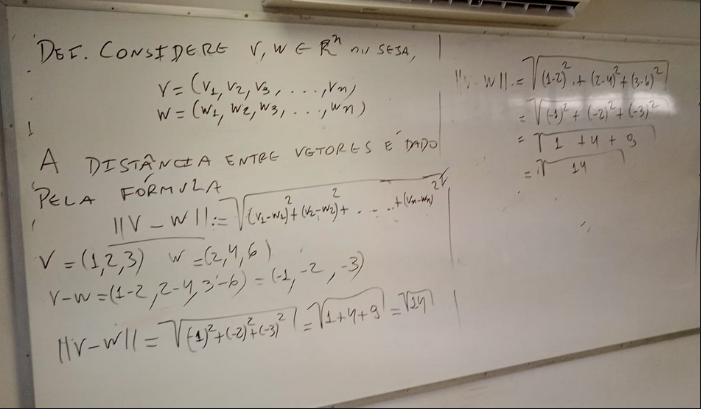 DEF. CONSIDERE V, W ∈ ℝⁿ OU SEJA,
V = (V₁, V₂, V₃, . . . , Vₙ)
W = (W₁, W₂, W₃, . . . , Wₙ)
A DISTÂNCIA ENTRE VETORES É DADO
PELA FÓRMULA
||V - W|| := √((V₁-W₁)²+(V₂-W₂)²+ . . . +(Vₙ-Wₙ)²)
V = (1,2,3) W = (2,4,6)
V-W = (1-2, 2-4, 3-6) = (-1, -2, -3)
||V-W|| = √((-1)²+(-2)²+(-3)²) = √(1+4+9) = √14
||V-W|| = √((1-2)²+(2-4)²+(3-6)²)
= √((-1)²+(-2)²+(-3)²)
= √(1+4+9)
= √14